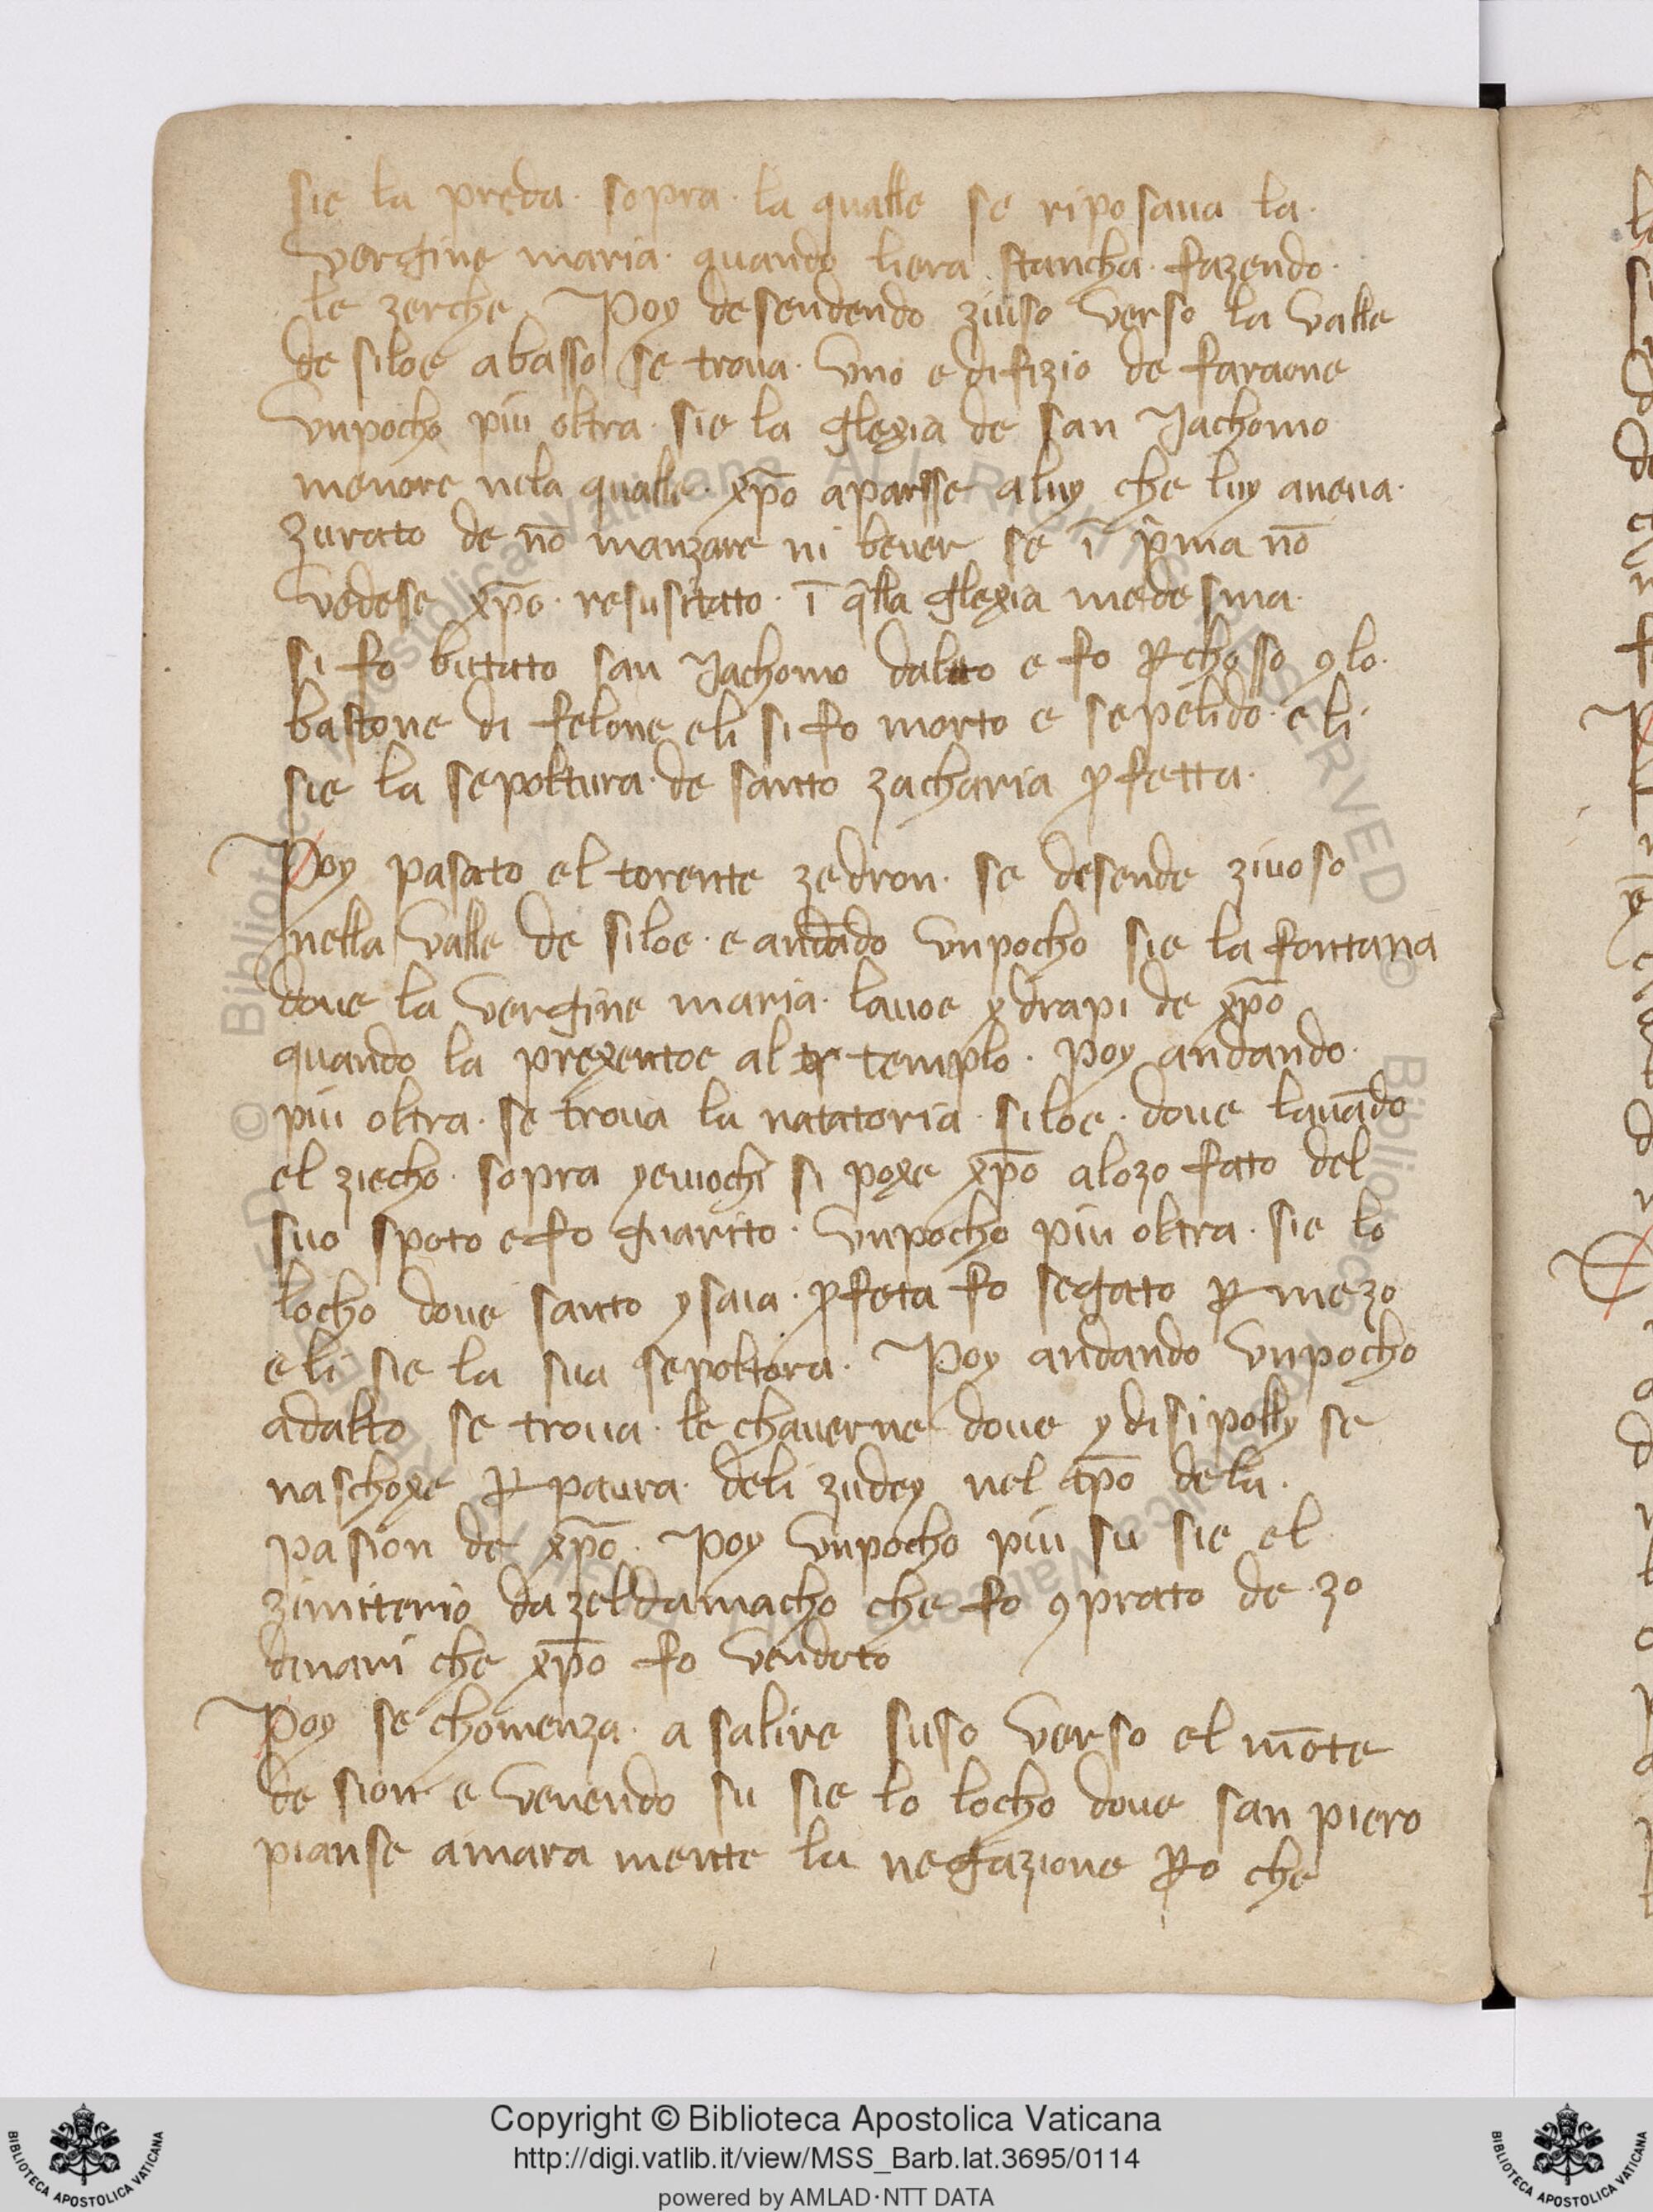 sie la preda · sopra · la qualle se riposaua la ·
vergine maria · quando liera stancha · fazendo ·
le zerche Poy desendendo ziuso verso la valle
de siloe abasso se troua · vno edifizio de faraone
vnpocho piu oltra · sie la glexia de san Jachomo
menore nela qualle · xp̄o aparsse aluy che luy aueua ·
zurato de nō manzare ni beuer se ī p̄ma nō
vedese xp̄o · resusitato · ī q̄lla glexia medesima ·
si fo bittato san Jachomo dalto e fo ꝑchosso ꝯ lo ·
bastone di felone eli si fo morto e sepelido · e li ·
sie la sepoltura · de santo zacharia ꝓfetta ·
Poy pasato el torente zedron · se desende ziuoso
nella valle de siloe · e andādo vnpocho sie la fontana
doue la vergine maria · lauoe y drapi de xp̄o
quando la prexentoe al tr templo · poy andando ·
piu oltra · se troua la natatoria · siloe · doue lauādo
el ziecho · sopra yeuiochi si poxe xp̄o alozo fato del
suo spoto e fo guarito · vnpocho piu oltra · sie lo
locho doue santo ysaia · ꝓfeta fo segato ꝑ mezo
e li sie la sua sepoltora · Poy andando vnpocho
adalto se troua · le chauerne doue y disipolly se
naschoxe ꝑ paura · deli zudey nel tp̄o dela ·
pasion de xp̄o · Poy vnpocho piu su sie el
zimiterio dazeldamacho che fo ꝯprato de · 30
dinari che xp̄o fo vendoto
Poy se chomenza · a salire suso verso el mōte
de sion e venendo su sie lo locho doue san piero
pianse amara mente la negazione ꝑo che
Copyright © Biblioteca Apostolica Vaticana
http://digi.vatlib.it/view/MSS_Barb.lat.3695/0114
powered by AMLAD·NTT DATA
BIBLIOTECA APOSTOLICA VATICANA
BIBLIOTECA APOSTOLICA VATICANA